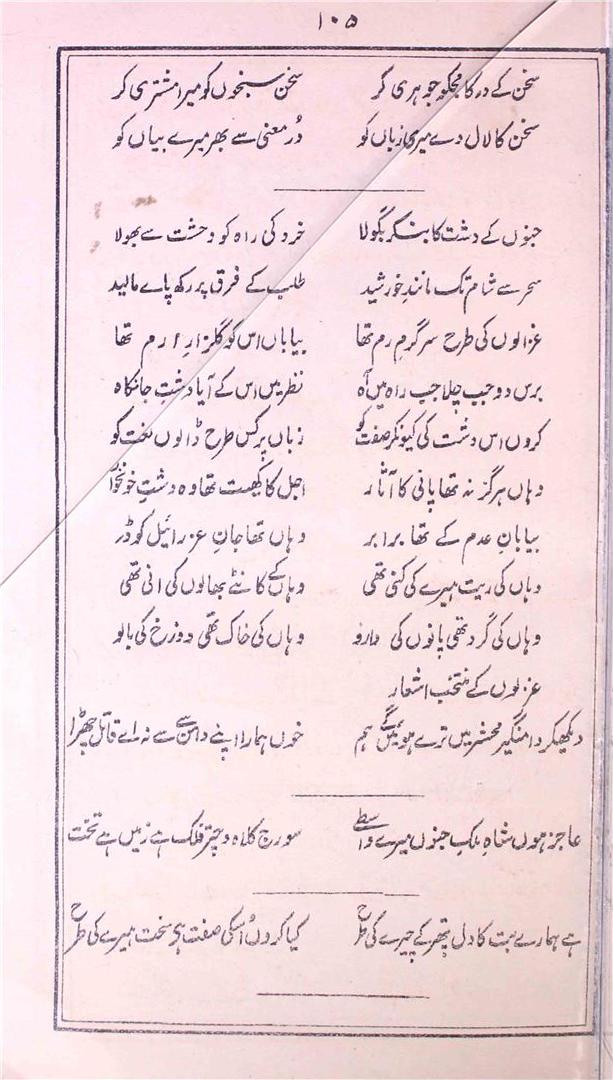 ۱۰۵
سخن کے در کا مجکو جوہری کر سخن سنجوں کو میرا مشتری کر
سخن کا لال دے میری زباں کو دُر معنی سے بھر میرے بیاں کو
جنوں کے دشت کا بنکر بگولا خرد کی راہ کو وحشت سے بھولا
سحر سے شام تک مانندِ خورشید طلب کے فرق پر رکھ پاے مالید
غزالوں کی طرح سرگرمِ رم تھا بیاباں اس کو گلزارِ ارم تھا
برس دو جب چلا جب راہ میں آہ نظر میں اس کے آیا دشتِ جانکاہ
کروں اس دشت کی کیونکر صفت کو زباں پر کس طرح ڈالوں لغت کو
وہاں ہرگز نہ تھا پانی کا آثار اجل کا کھیت تھا وہ دشتِ خونخوار
بیابانِ عدم کے تھا برابر وہاں تھا جانِ عزرائیل کو ڈر
وہاں کی ریت ہیرے کی کنی تھی وہاں کے کانٹے بھالوں کی انی تھی
وہاں کی گرد تھی پانوں کی دارو وہاں کی خاک تھی دوزخ کی بالو
غزلوں کے منتخب اشعار
دیکھکر دامنگیر محشر میں ترے ہوئیں گے ہم خوں ہمارا اپنے دامن سے نہ اے قاتل چھڑا
عاجز ہوں شاہِ ملکِ جنوں میرے واسطے سورج کلاہ و چتر فلک ہے زمیں ہے تخت
ہے ہمارے بت کا دل پتھر کے چیرے کی طرح کیا کروں اُسکی صفت ہے سخت ہیرے کی طرح